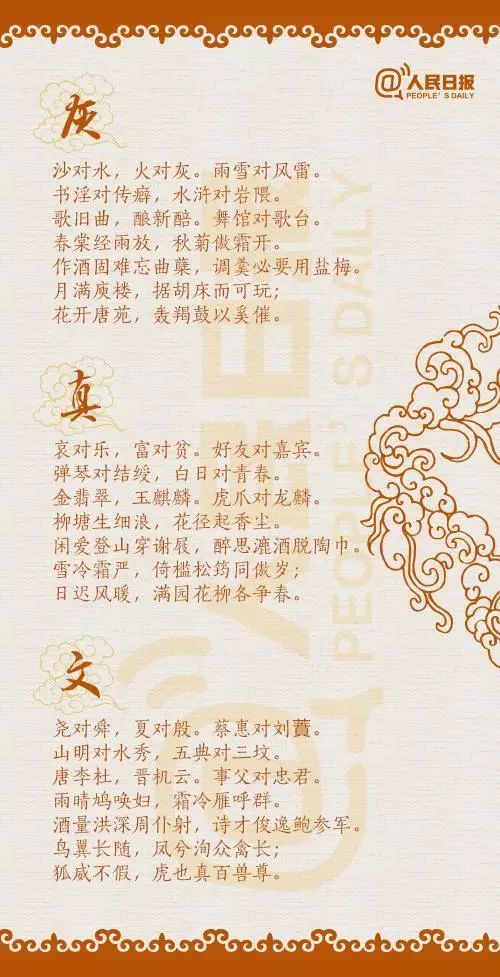 @人民日报
PEOPLE'S DAILY
灰
沙对水，火对灰。雨雪对风雷。
书淫对传癖，水浒对岩隈。
歌旧曲，酿新醅。舞馆对歌台。
春棠经雨放，秋菊傲霜开。
作酒固难忘曲蘖，调羹必要用盐梅。
月满庾楼，据胡床而可玩；
花开唐苑，轰羯鼓以奚催。
真
哀对乐，富对贫。好友对嘉宾。
弹琴对结绶，白日对青春。
金翡翠，玉麒麟。虎爪对龙麟。
柳塘生细浪，花径起香尘。
闲爱登山穿谢屐，醉思漉酒脱陶巾。
雪冷霜严，倚槛松筠同傲岁；
日迟风暖，满园花柳各争春。
文
尧对舜，夏对殷。蔡惠对刘蕡。
山明对水秀，五典对三坟。
唐李杜，晋机云。事父对忠君。
雨晴鸠唤妇，霜冷雁呼群。
酒量洪深周仆射，诗才俊逸鲍参军。
鸟翼长随，凤兮洵众禽长；
狐威不假，虎也真百兽尊。
@人民日报
PEOPLE'S DAILY